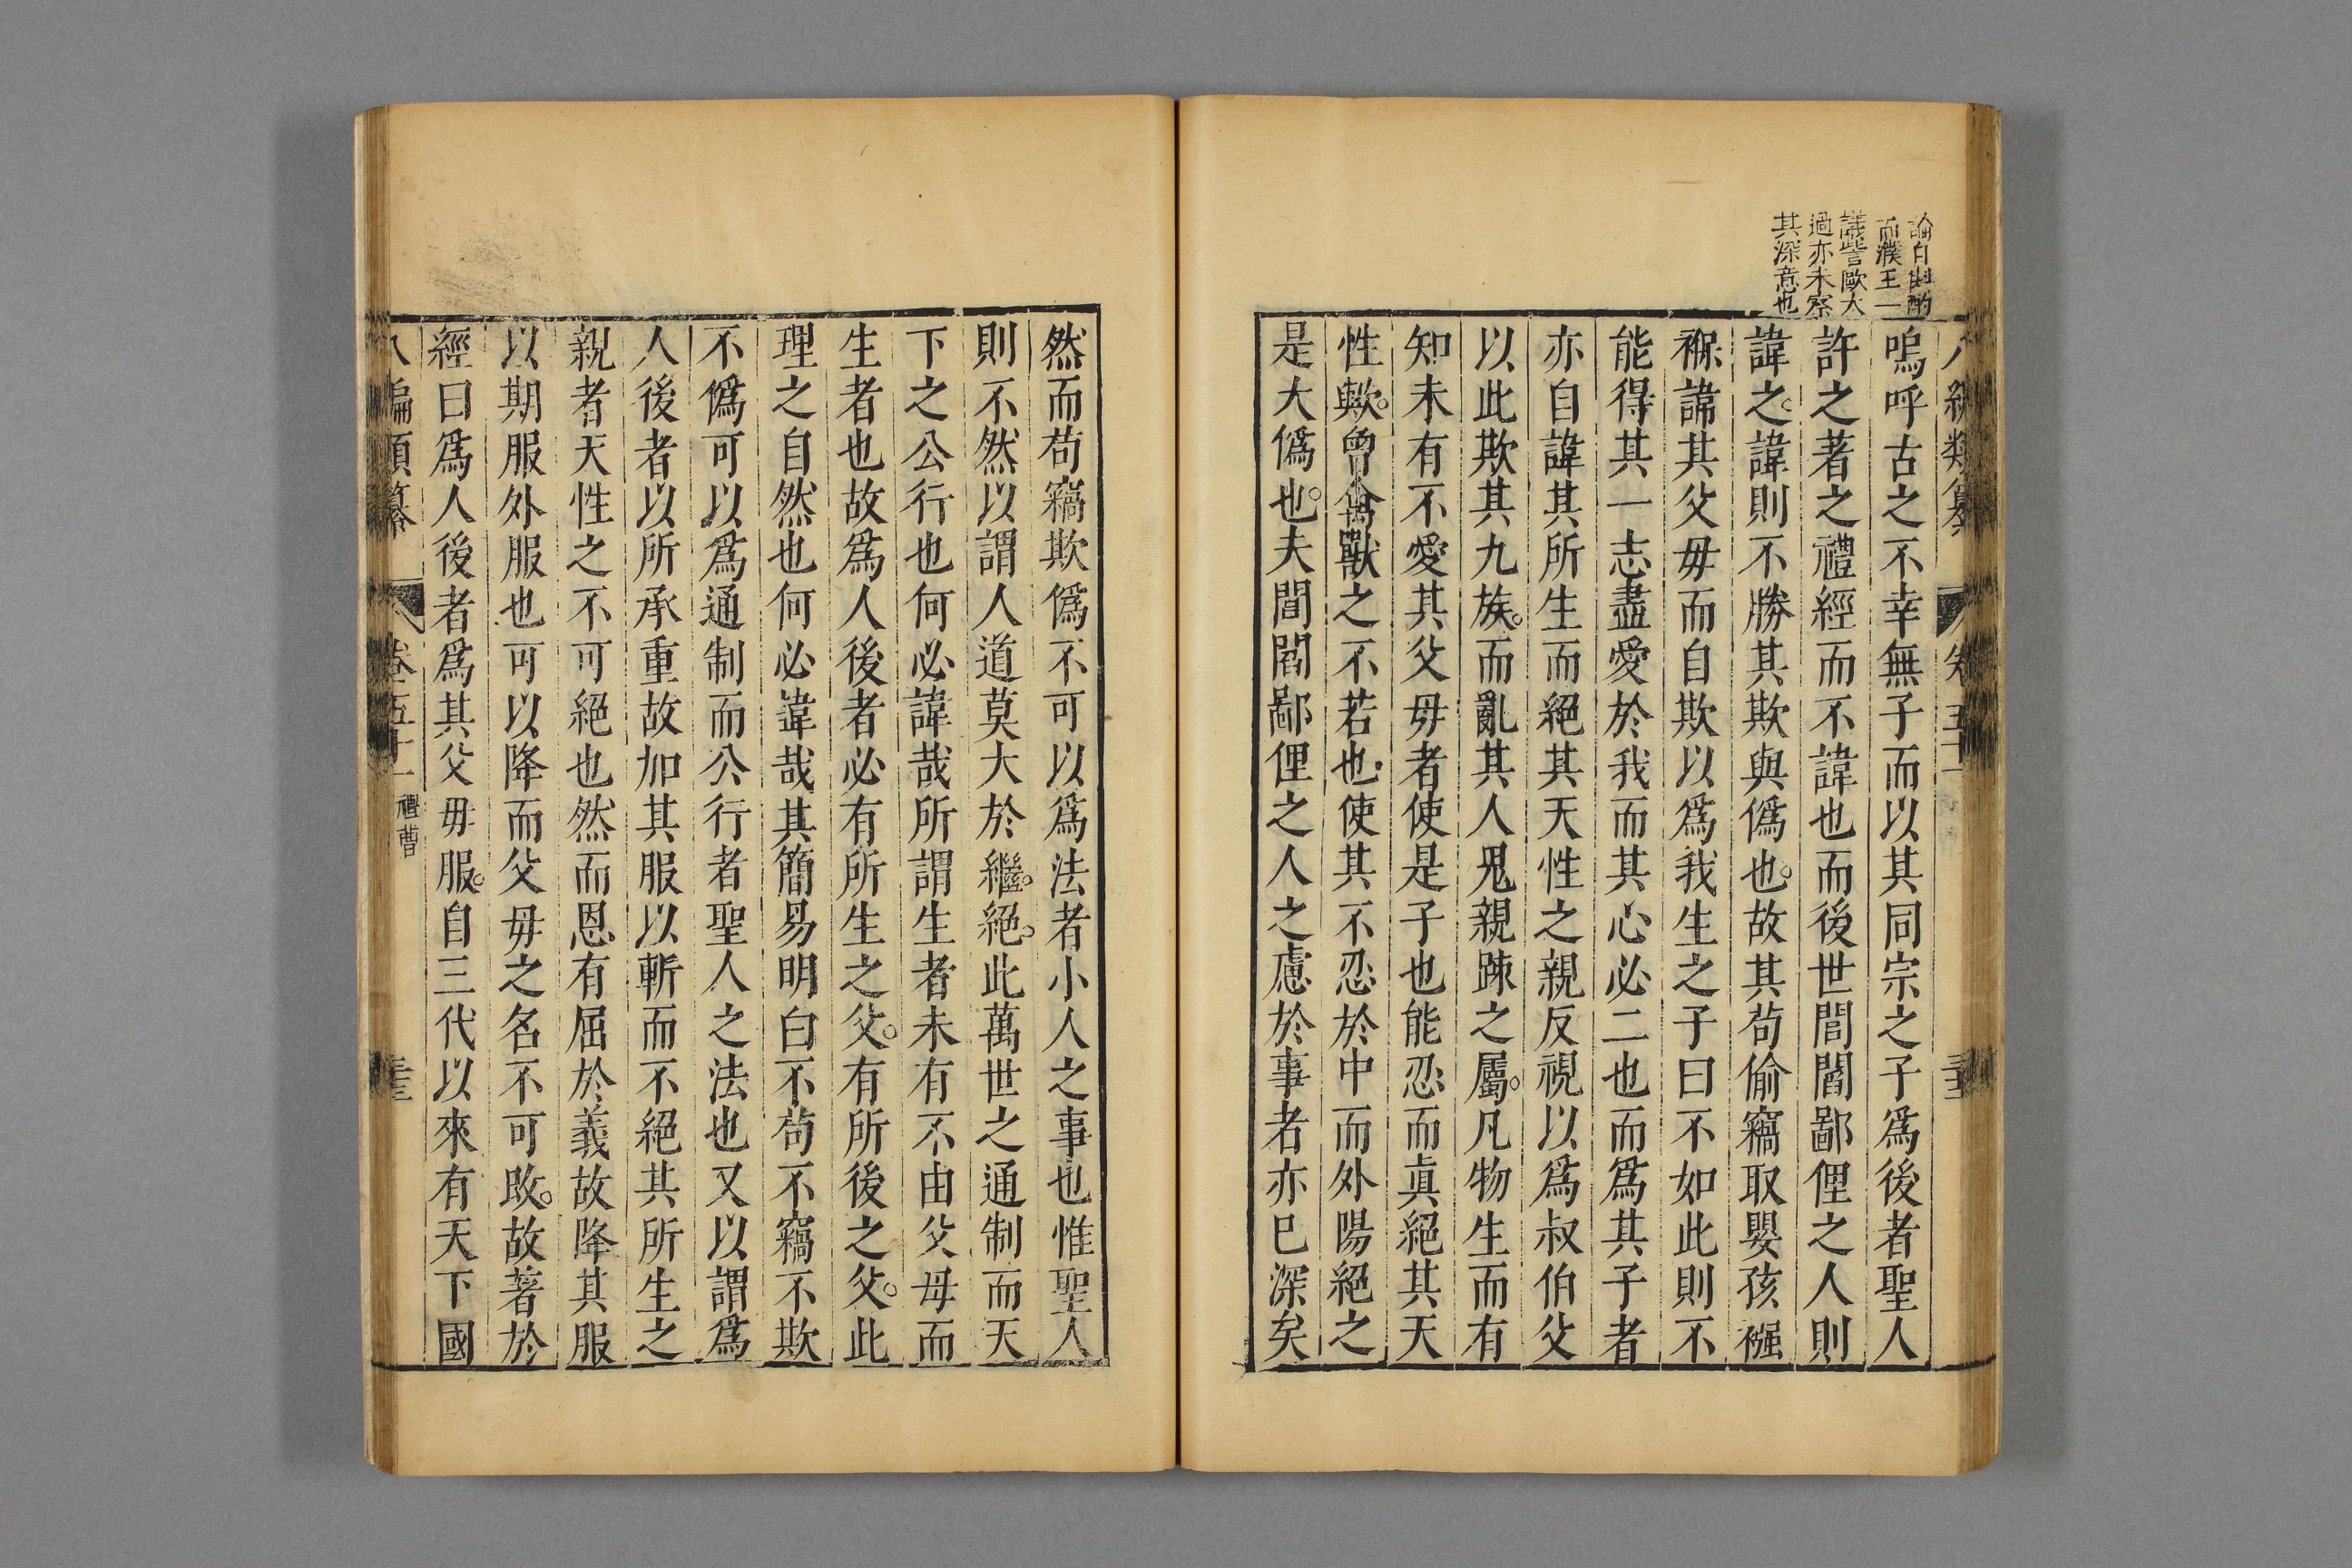 論自
而濮王一
議訾歐大
過亦未察
其深意也
嗚呼古之不幸無子而以其同宗之子爲後者聖人
許之著之禮經而不諱也而後世閭閻鄙俚之人則
諱之諱則不勝其欺與僞也故其苟偷竊取嬰孩襁
褓諱其父毋而自欺以爲我生之子曰不如此則不
能得其一志盡愛於我而其心必二也而爲其子者
亦自諱其所生而絕其天性之親反視以爲叔伯父
以此欺其九族而亂其人鬼親踈之屬凡物生而有
知未有不愛其父毋者使是子也能忍而眞絕其天
性歟曾禽獸之不若也使其不忍於中而外陽絕之
是大僞也夫閭閻鄙俚之人之慮於事者亦巳深矣
然而苟竊欺僞不可以爲法者小人之事也惟聖人
則不然以謂人道莫大於繼絕此萬世之通制而天
下之公行也何必諱哉所謂生者未有不由父毋而
生者也故爲人後者必有所生之父有所後之父此
理之自然也何必諱哉其簡易明白不苟不竊不欺
不僞可以爲通制而公行者聖人之法也又以謂爲
人後者以所承重故加其服以斬而不絕其所生之
親者天性之不可絕也然而恩有屈於義故降其服
以期服外服也可以降而父毋之名不可改故著於
經曰爲人後者爲其父毋服自三代以來有天下國
八編類纂 卷五十一 禮曹